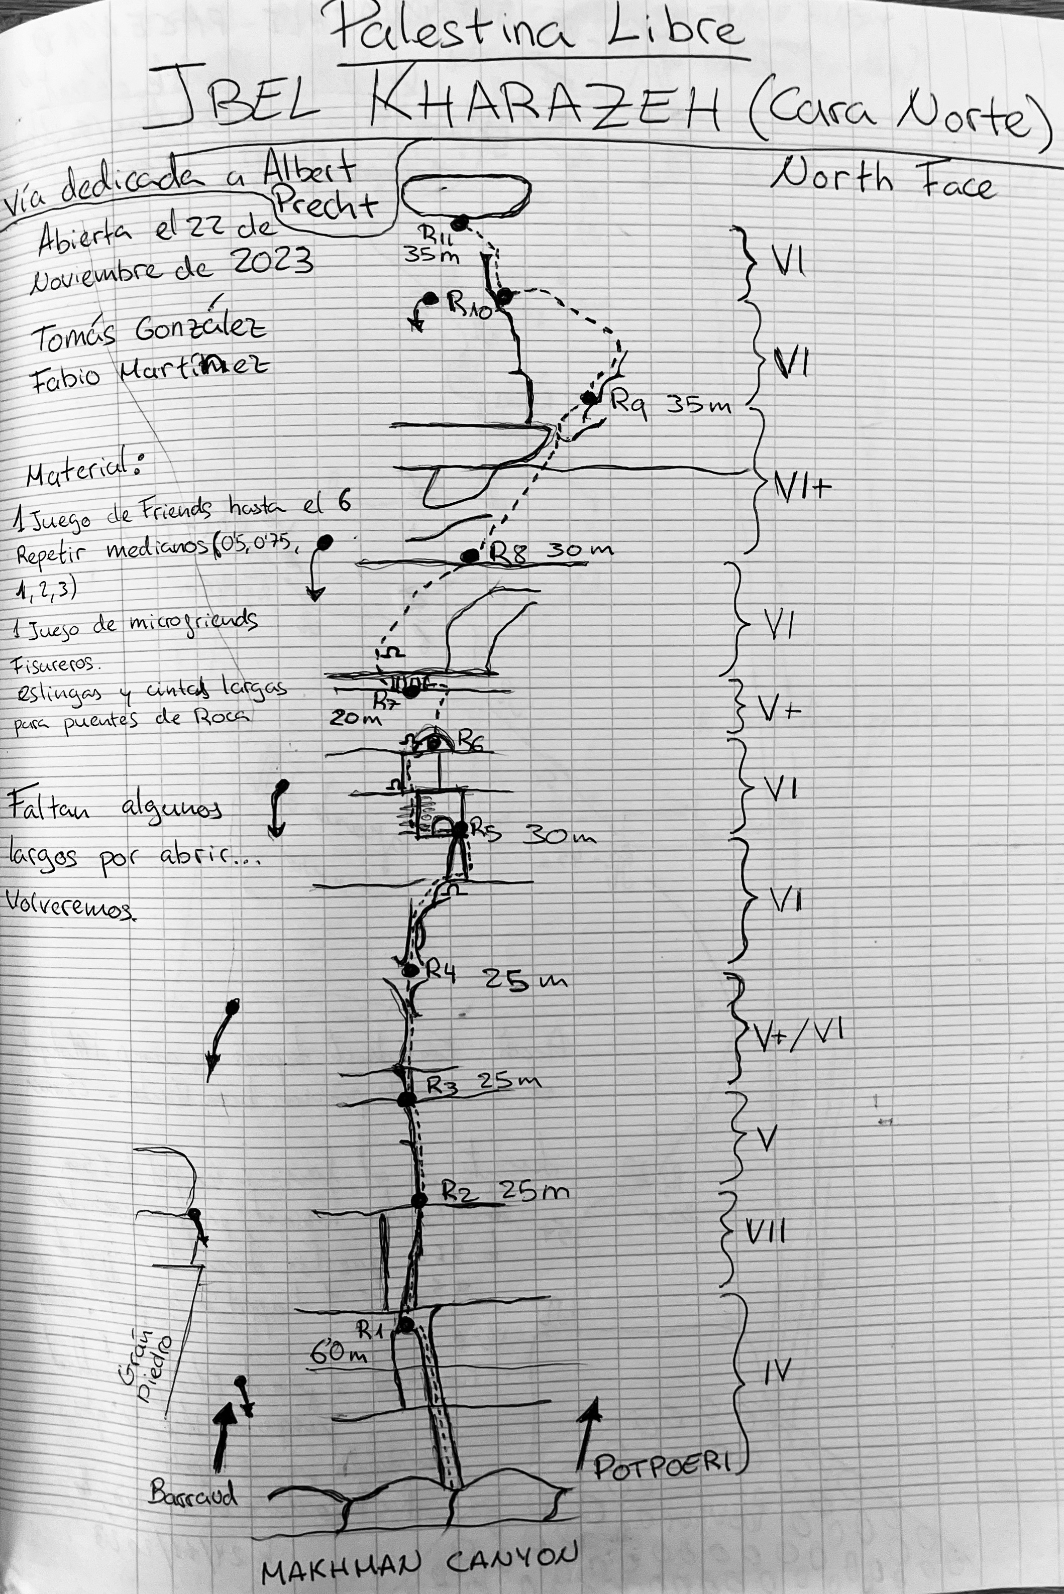 Palestina Libre
JBEL KHARAZEH (Cara Norte)
North Face
vía dedicada a Albert
Precht
Abierta el 22 de
Noviembre de 2023
Tomás González
Fabio Martínez
Material:
1 Juego de Friends hasta el 6
Repetir medianos (0'5, 0'75,
1, 2, 3)
1 Juego de microfriends
Fisureros.
eslingas y cintas largas
para puentes de Roca
Faltan algunos
largos por abrir...
Volveremos.
R11
35m
VI
R10
VI
R9 35m
VI+
R8 30m
VI
R7
20m
V+
R6
VI
R5 30m
VI
R4 25m
V+/VI
R3 25m
V
R2 25m
VII
R1
60m
IV
Gran
Piedro
Barraud
POTPOERI
MAKHMAN CANYON